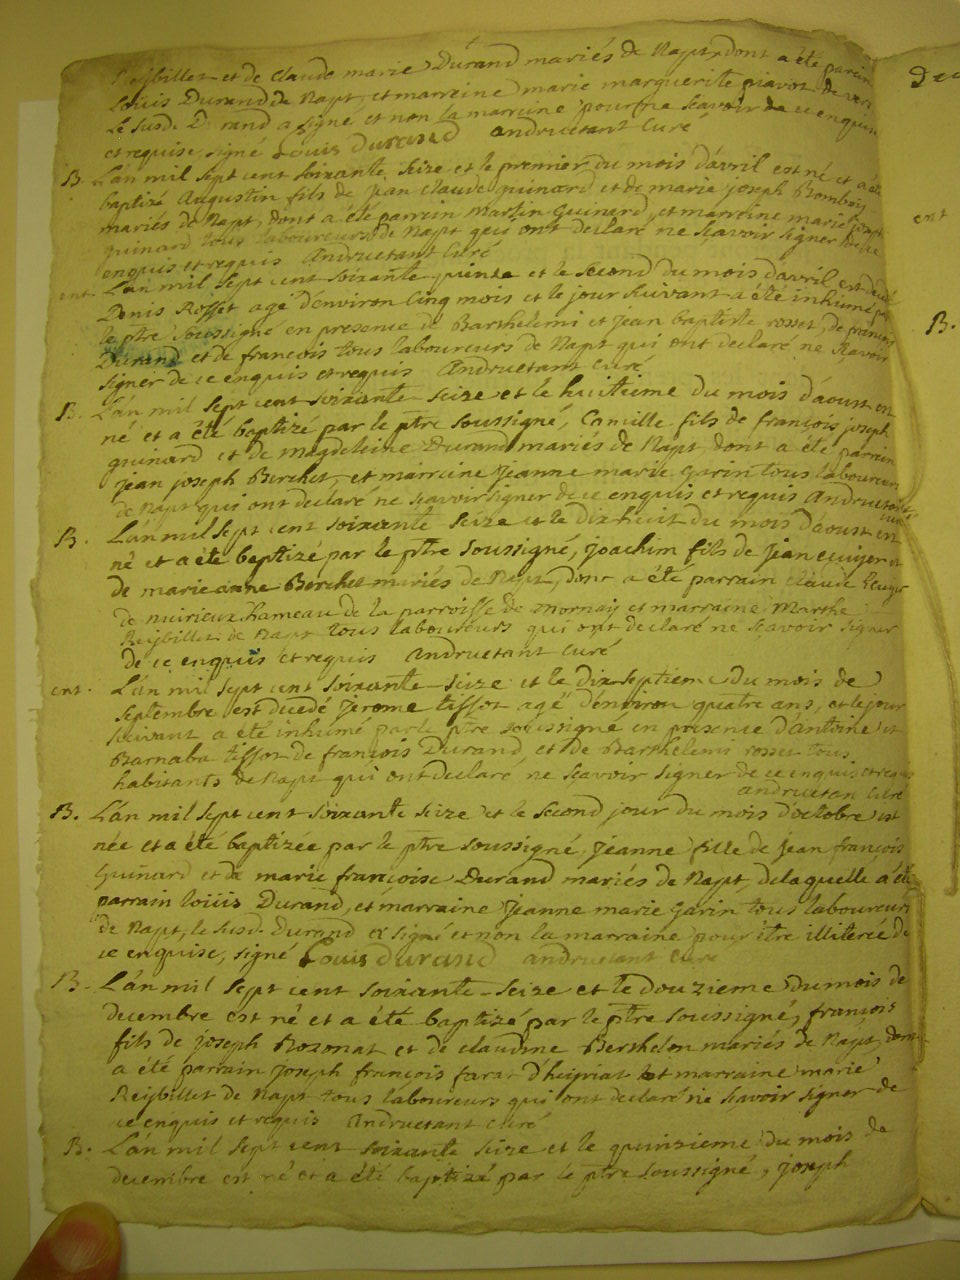 Reÿbillet et de Claude marie Durand mariés de Napt, dont a été parrin
Louis Durand de Napt, et marreine marie marguerite piavoz de
Le susd. Durand a signé et non la marreine pour ne scavoir de ce enquise
et requise, signé Louis Durand Andruetant Curé
B. L'an mil sept cent soixante seize et le premier du mois d'avril est né et a été
baptizé Augustin fils de jean claude guinard et de marie joseph
mariés de Napt, dont a été parrein Martin Guinard, et marreine marie joseph
guinard tous laboureurs de Napt qui ont declaré ne scavoir signer de ce
enquis et requis Andruetant Curé
ent. L'an mil sept cent soixante et le second du mois d'avril est décédé
Denis Rosset agé d'environ cinq mois et le jour suivant a été inhumé par
le ptre soussigné en presence de Barthelemi et jean baptiste rosset, de françois
Durand et de françois tous laboureurs de Napt qui ont declaré ne scavoir
signer de ce enquis et requis Andruetant Curé
B. L'an mil sept cent soixante seize et le huitieme du mois d'aoust est
né et a été baptizé par le ptre soussigné, Camille fils de françois joseph
guinard et de magdeleine Durand mariés de Napt, dont a été parrein
jean joseph Berchet, et marreine jeanne marie garin tous laboureurs
de Napt qui ont declaré ne scavoir signer de ce enquis et requis Andruetant
Curé
B. L'an mil sept cent soixante seize et le dix huit du mois d'aoust est
né et a été baptizé par le ptre soussigné, joachim fils de jean et
de marie anne Berchet mariés de Napt, dont a été parrain claude
de hameau de la parroisse de mornaÿ et marraine Marthe
Reÿbillet de Napt tous laboureurs qui ont declaré ne scavoir signer
de ce enquis et requis Andruetant Curé
ent. L'an mil sept cent soixante seize et le dix septieme du mois de
septembre est decedé jerome tissot agé d'environ quatre ans, et le jour
suivant a été inhumé par le ptre soussigné en presence d'antoine et
Barnaba tissot de françois Durand et de Barthelemi rosset tous
habitants de Napt qui ont declaré ne scavoir signer de ce enquis et requis
andruetan Curé
B. L'an mil sept cent soixante seize et le second jour du mois d'octobre est
née et a été baptizée par le ptre soussigné, jeanne fille de jean françois
Guinard et de marie françoise Durand mariés de Napt, de laquelle a été
parrain loüis Durand, et marraine jeanne marie garin tous laboureurs
de Napt, le susd. Durand a signé et non la marraine pour être illiterée de
ce enquise, signé Louis durand andruetant Curé
B. L'an mil sept cent soixante-seize et le douzieme du mois de
decembre est né et a été baptizé par le ptre soussigné, françois
fils de joseph Rozonat et de claudine Berthelon mariés de Napt, dont
a été parrain joseph françois farat d'heiriat et marraine marie
Reÿbillet de Napt tous laboureurs qui ont declaré ne scavoir signer de
ce enquis et requis Andruetant Curé
B. L'an mil sept cent soixante seize et le quinzieme du mois de
decembre est né et a été baptizé par le ptre soussigné, joseph
ent
B.